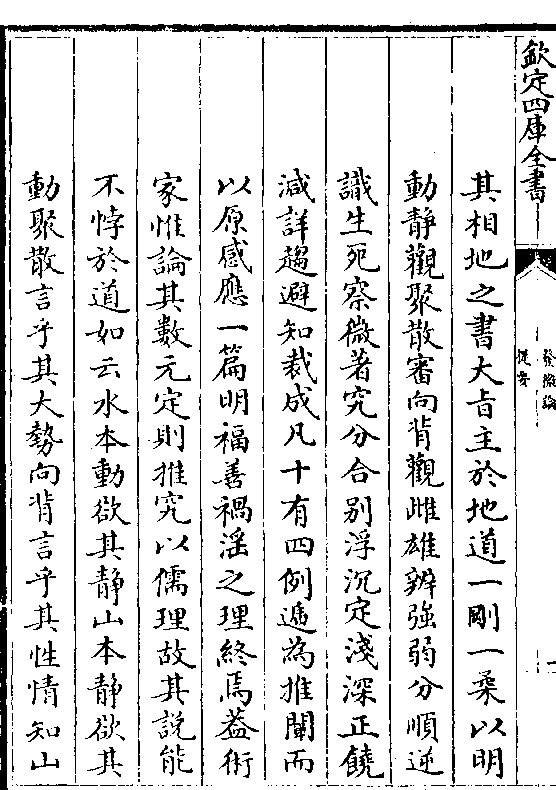 欽定四庫全書
發微論
提要
其相地之書大旨主於地道一剛一柔以明
動静觀聚散審向背觀雌雄辨強弱分順逆
識生死察微著究分合别浮沉定淺深正饒
減詳趨避知裁成凡十有四例遞為推闡而
以原感應一篇明福善禍淫之理終焉葢術
家惟論其數元定則推究以儒理故其説能
不悖於道如云水本動欲其静山本静欲其
動聚散言乎其大勢向背言乎其性情知山